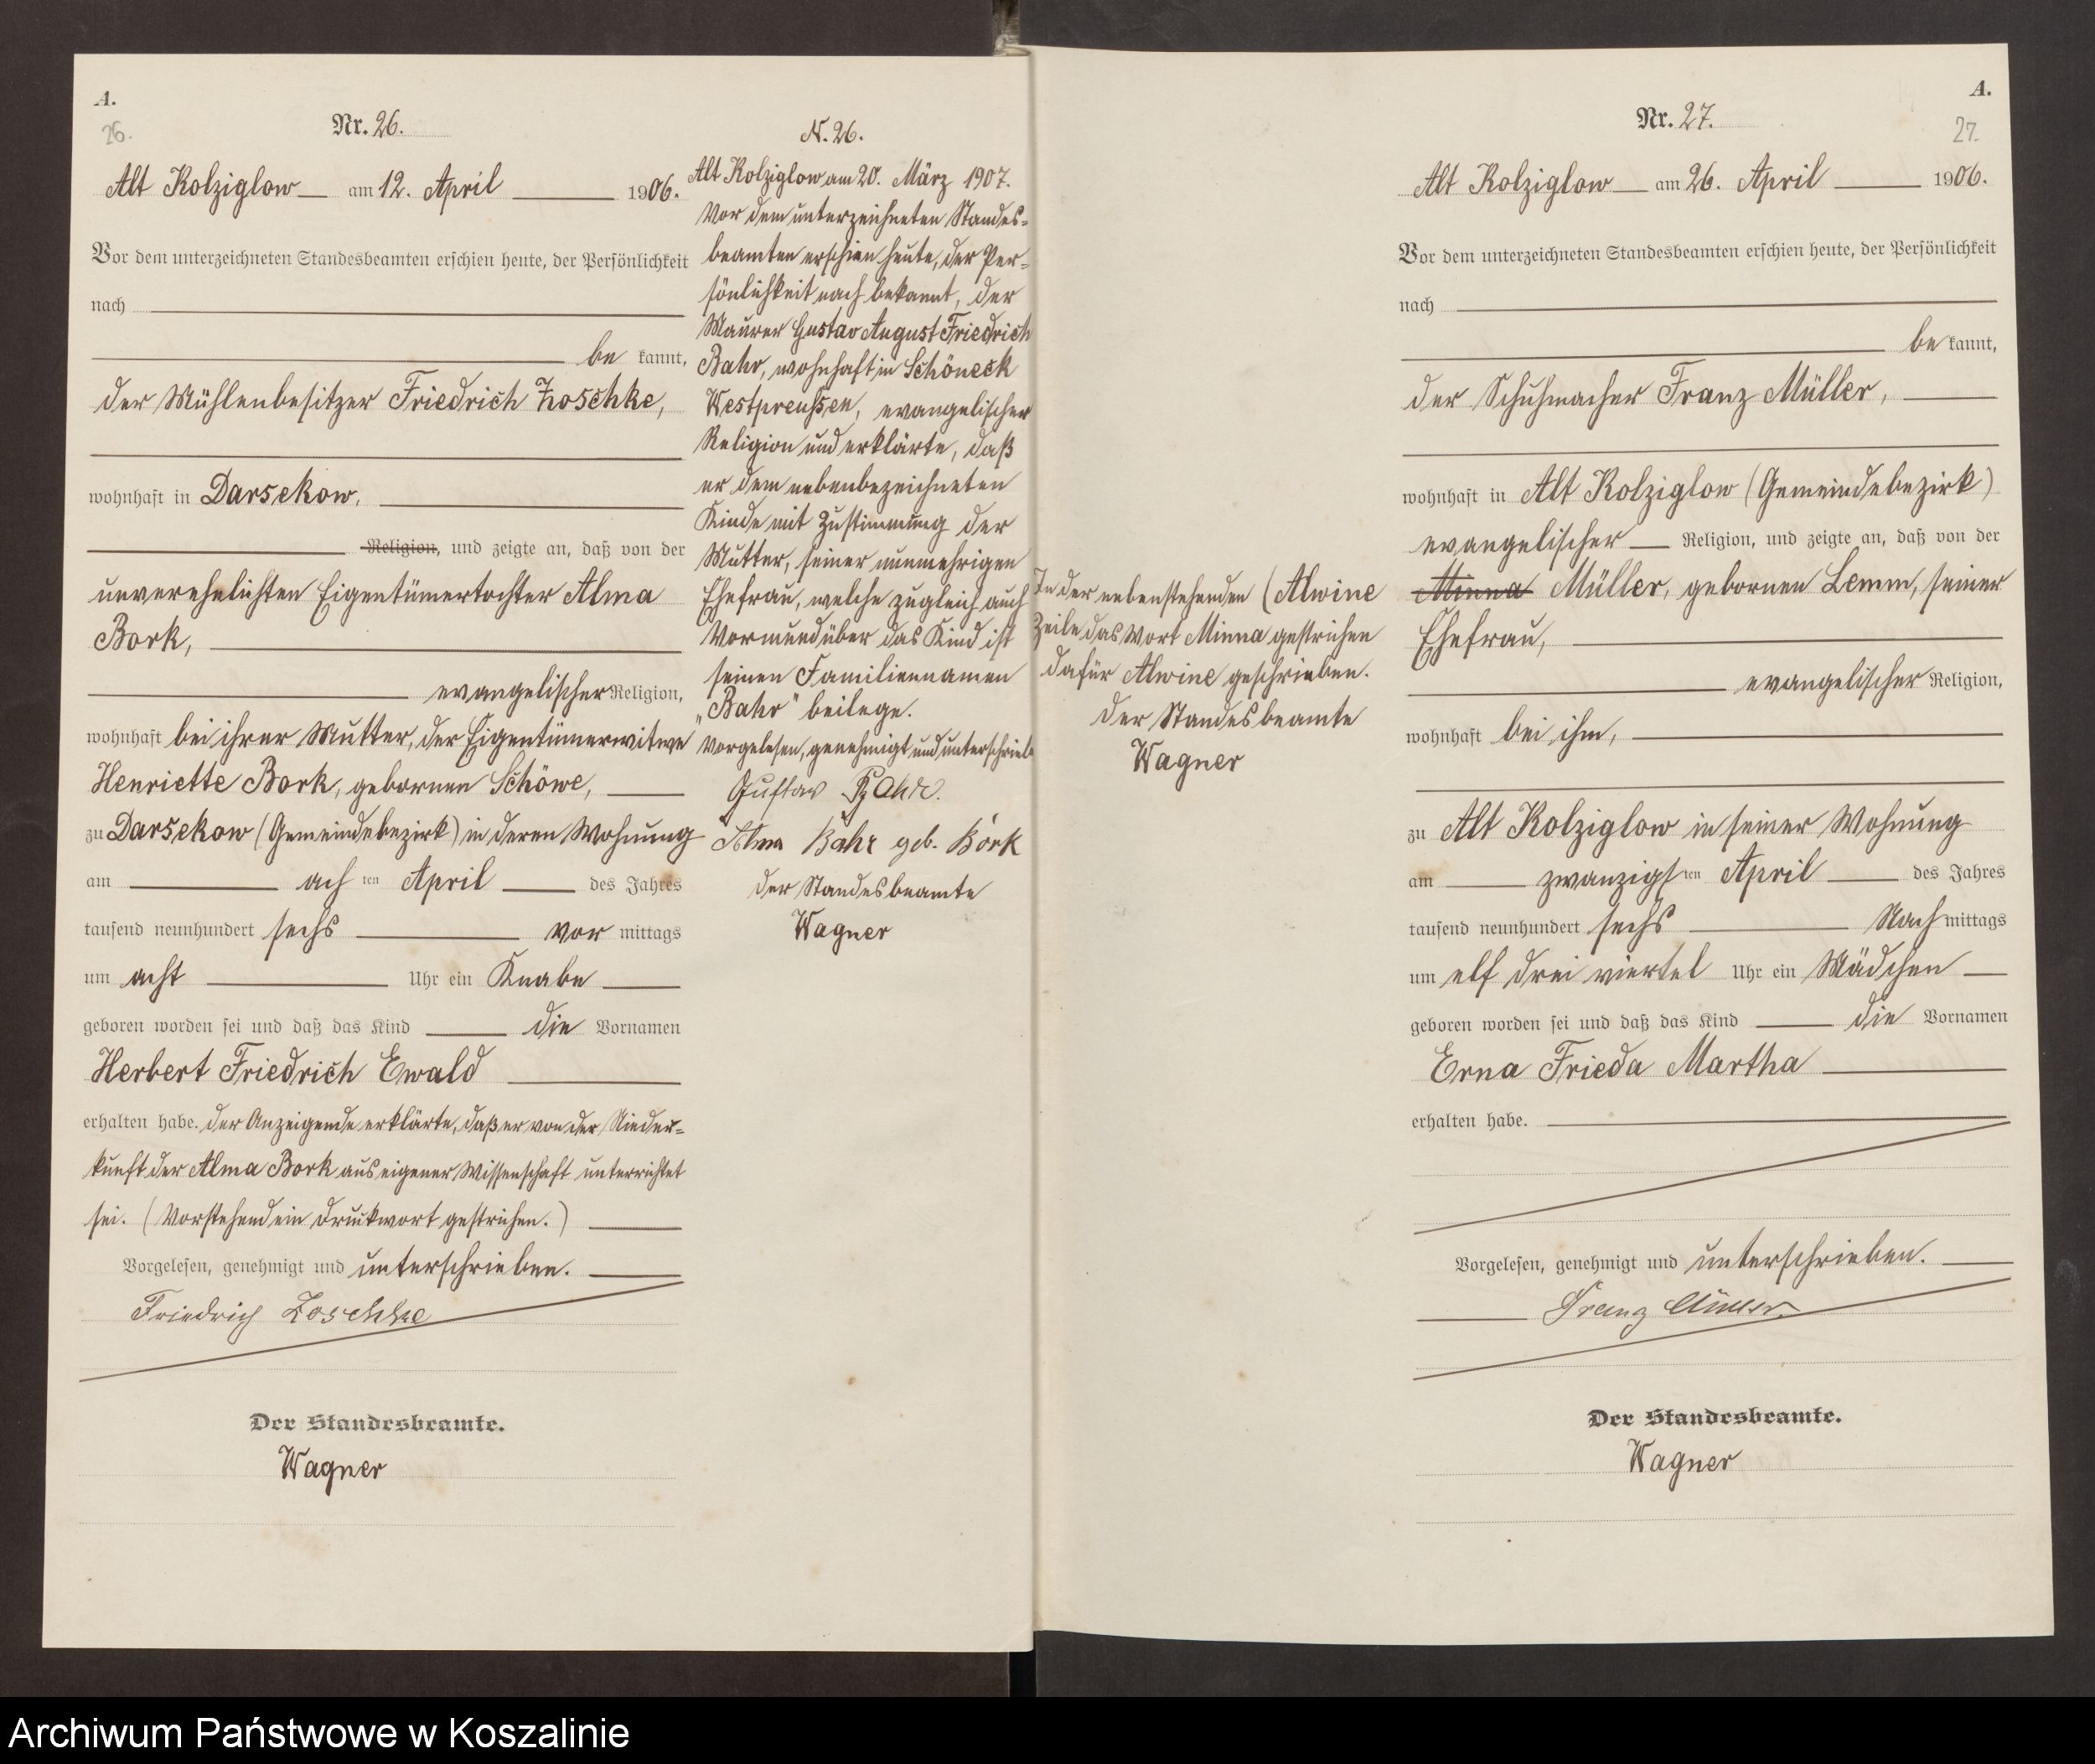 A.
26.
Nr. 26.
Alt Kolziglow am 12. April 1906.
Vor dem unterzeichneten Standesbeamten erschien heute, der Persönlichkeit
nach
be kannt,
der Mühlenbesitzer Friedrich Zoschke,
wohnhaft in Darsekow,
Religion, und zeigte an, daß von der
unverehelichten Eigentümertochter Alma
Bork,
evangelischer Religion,
wohnhaft bei ihrer Mutter, der Eigentümerwitwe
Henriette Bork, gebornen Schöwe,
zu Darsekow (Gemeindebezirk) in deren Wohnung
am ach ten April des Jahres
tausend neunhundert sechs vor mittags
um acht Uhr ein Knabe
geboren worden sei und daß das Kind die Vornamen
Herbert Friedrich Ewald
erhalten habe. Der Anzeigende erklärte, daß er von der Nieder=
kunft der Alma Bork aus eigener Wissenschaft unterrichtet
sei. (Vorstehend ein Druckwort gestrichen.)
Vorgelesen, genehmigt und unterschrieben.
Friedrich Zoschke
Der Standesbeamte.
Wagner
N. 26.
Alt Kolziglow am 20. März 1907.
Vor dem unterzeichneten Standes=
beamten erschien heute, der Per=
sönlichkeit nach bekannt, der
Maurer Gustav August Friedrich
Bahr, wohnhaft in Schöneck
Westpreußen, evangelischer
Religion und erklärte, daß
er dem nebenbezeichneten
Kinde mit Zustimmung der
Mutter, seiner nunmehrigen
Ehefrau, welche zugleich auch
Vormund über das Kind ist
seinen Familiennamen
„Bahr" beilege.
Vorgelesen, genehmigt und unterschrieb
Gustav Bahr.
Alma Bahr geb. Bork
Der Standesbeamte
Wagner
In der nebenstehenden (Alwine
Zeile das Wort Minna gestrichen
dafür Alwine geschrieben.
Der Standesbeamte
Wagner
A.
27.
Nr. 27.
Alt Kolziglow am 26. April 1906.
Vor dem unterzeichneten Standesbeamten erschien heute, der Persönlichkeit
nach
be kannt,
der Schuhmacher Franz Müller,
wohnhaft in Alt Kolziglow (Gemeindebezirk)
evangelischer Religion, und zeigte an, daß von der
Minna Müller, gebornen Lemm, seiner
Ehefrau,
evangelischer Religion,
wohnhaft bei ihm,
zu Alt Kolziglow in seiner Wohnung
am zwanzigs ten April des Jahres
tausend neunhundert sechs Nach mittags
um elf drei viertel Uhr ein Mädchen
geboren worden sei und daß das Kind die Vornamen
Erna Frieda Martha
erhalten habe.
Vorgelesen, genehmigt und unterschrieben.
Franz Müller
Der Standesbeamte.
Wagner
Archiwum Państwowe w Koszalinie